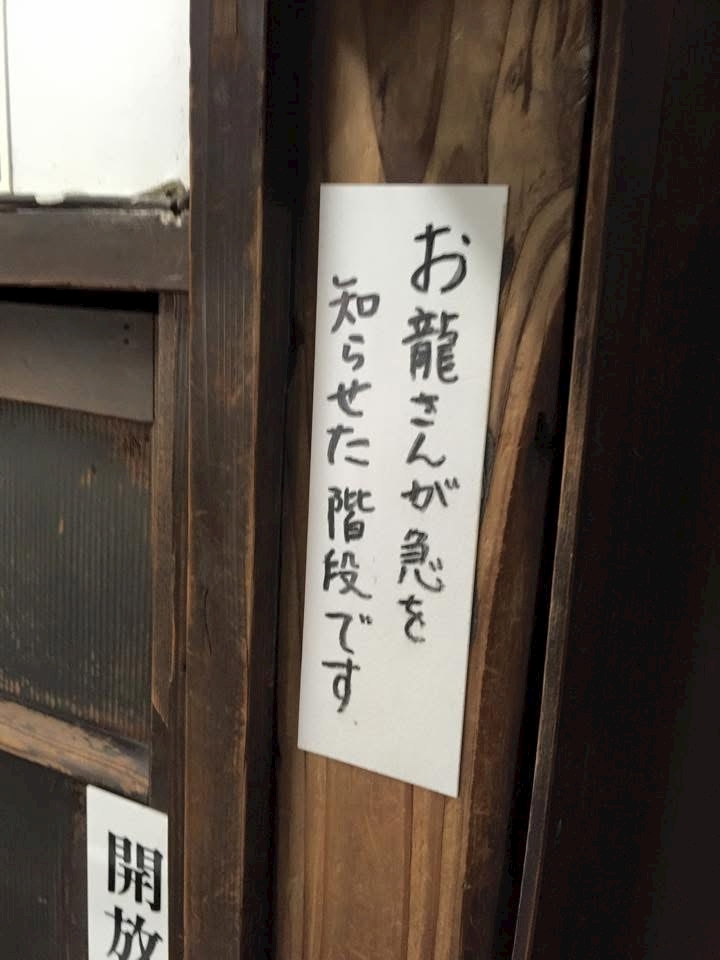 お龍さんが急を
知らせた階段です
開放